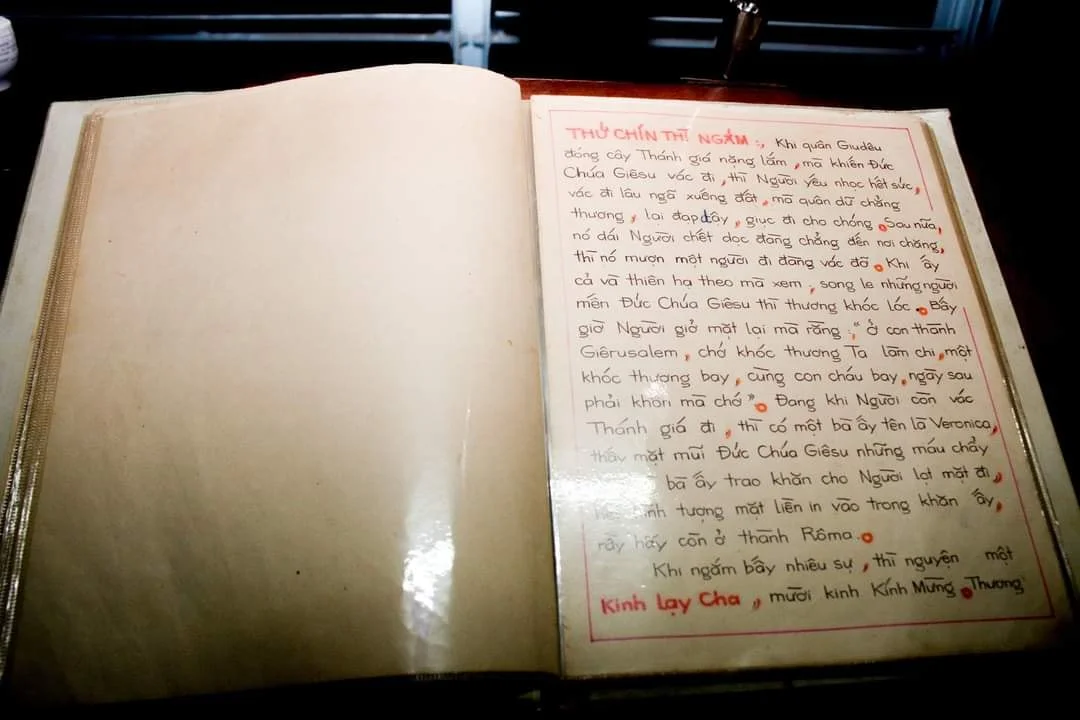 THỨ CHÍN THÌ NGẮM :, Khi quân Giuđêu
đóng cây Thánh giá nặng lắm, mà khiến Đức
Chúa Giêsu vác đi, thì Người yếu nhọc hết sức,
vác đi lâu ngã xuống đất, mà quân dữ chẳng
thương, lại đạp dậy, giục đi cho chóng. Sau nữa,
nó dái Người chết dọc đàng chẳng đến nơi chăng,
thì nó mượn một người đi đàng vác đỡ. Khi ấy
cả và thiên hạ theo mà xem, song le những người
mến Đức Chúa Giêsu thì thương khóc lóc. Bấy
giờ Người giở mặt lại mà rằng :, " Ở con thành
Giêrusalem, chớ khóc thương Ta làm chi, một
khóc thương bay, cùng con cháu bay, ngày sau
phải khốn mà chớ". Đang khi Người còn vác
Thánh giá đi, thì có một bà ấy tên là Veronica,
thấy mặt mũi Đức Chúa Giêsu những máu chẩy
bà ấy trao khăn cho Người lọt mặt đi,
hình tượng mặt liền in vào trong khăn ấy,
rầy hãy còn ở thành Rôma.
Khi ngắm bấy nhiêu sự, thì nguyện một
Kinh Lạy Cha, mười kinh Kính Mừng. Thương